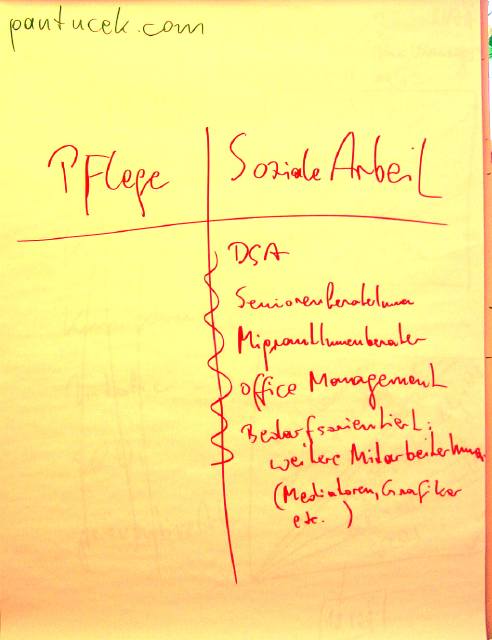 pantucek.com
Pflege
Soziale Arbeit
DSA
SeniorenberaterInnen
MigrantInnenberater
Office Management
Bedarfsorientiert:
weitere MitarbeiterInnen
(Mediatoren, Grafiker
etc. )